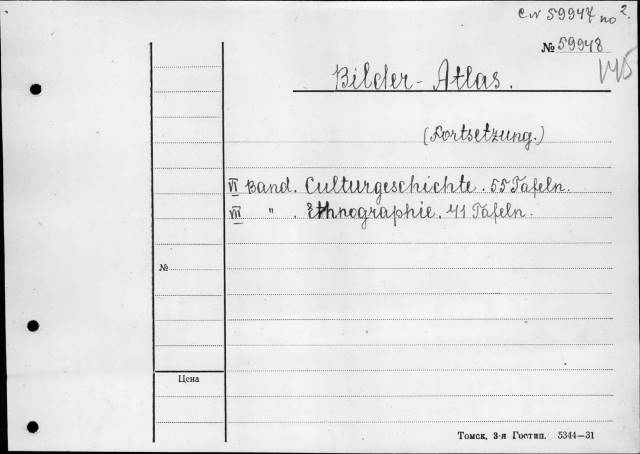 см 59947 no 2.
№ 59948
145
Bilder-Atlas.
(Fortsetzung.)
VI Band. Culturgeschichte. 55 Tafeln.
VII " . Ethnographie. 41 Tafeln.
№
Цена
Томск, 3-я Гостип. 5344—31